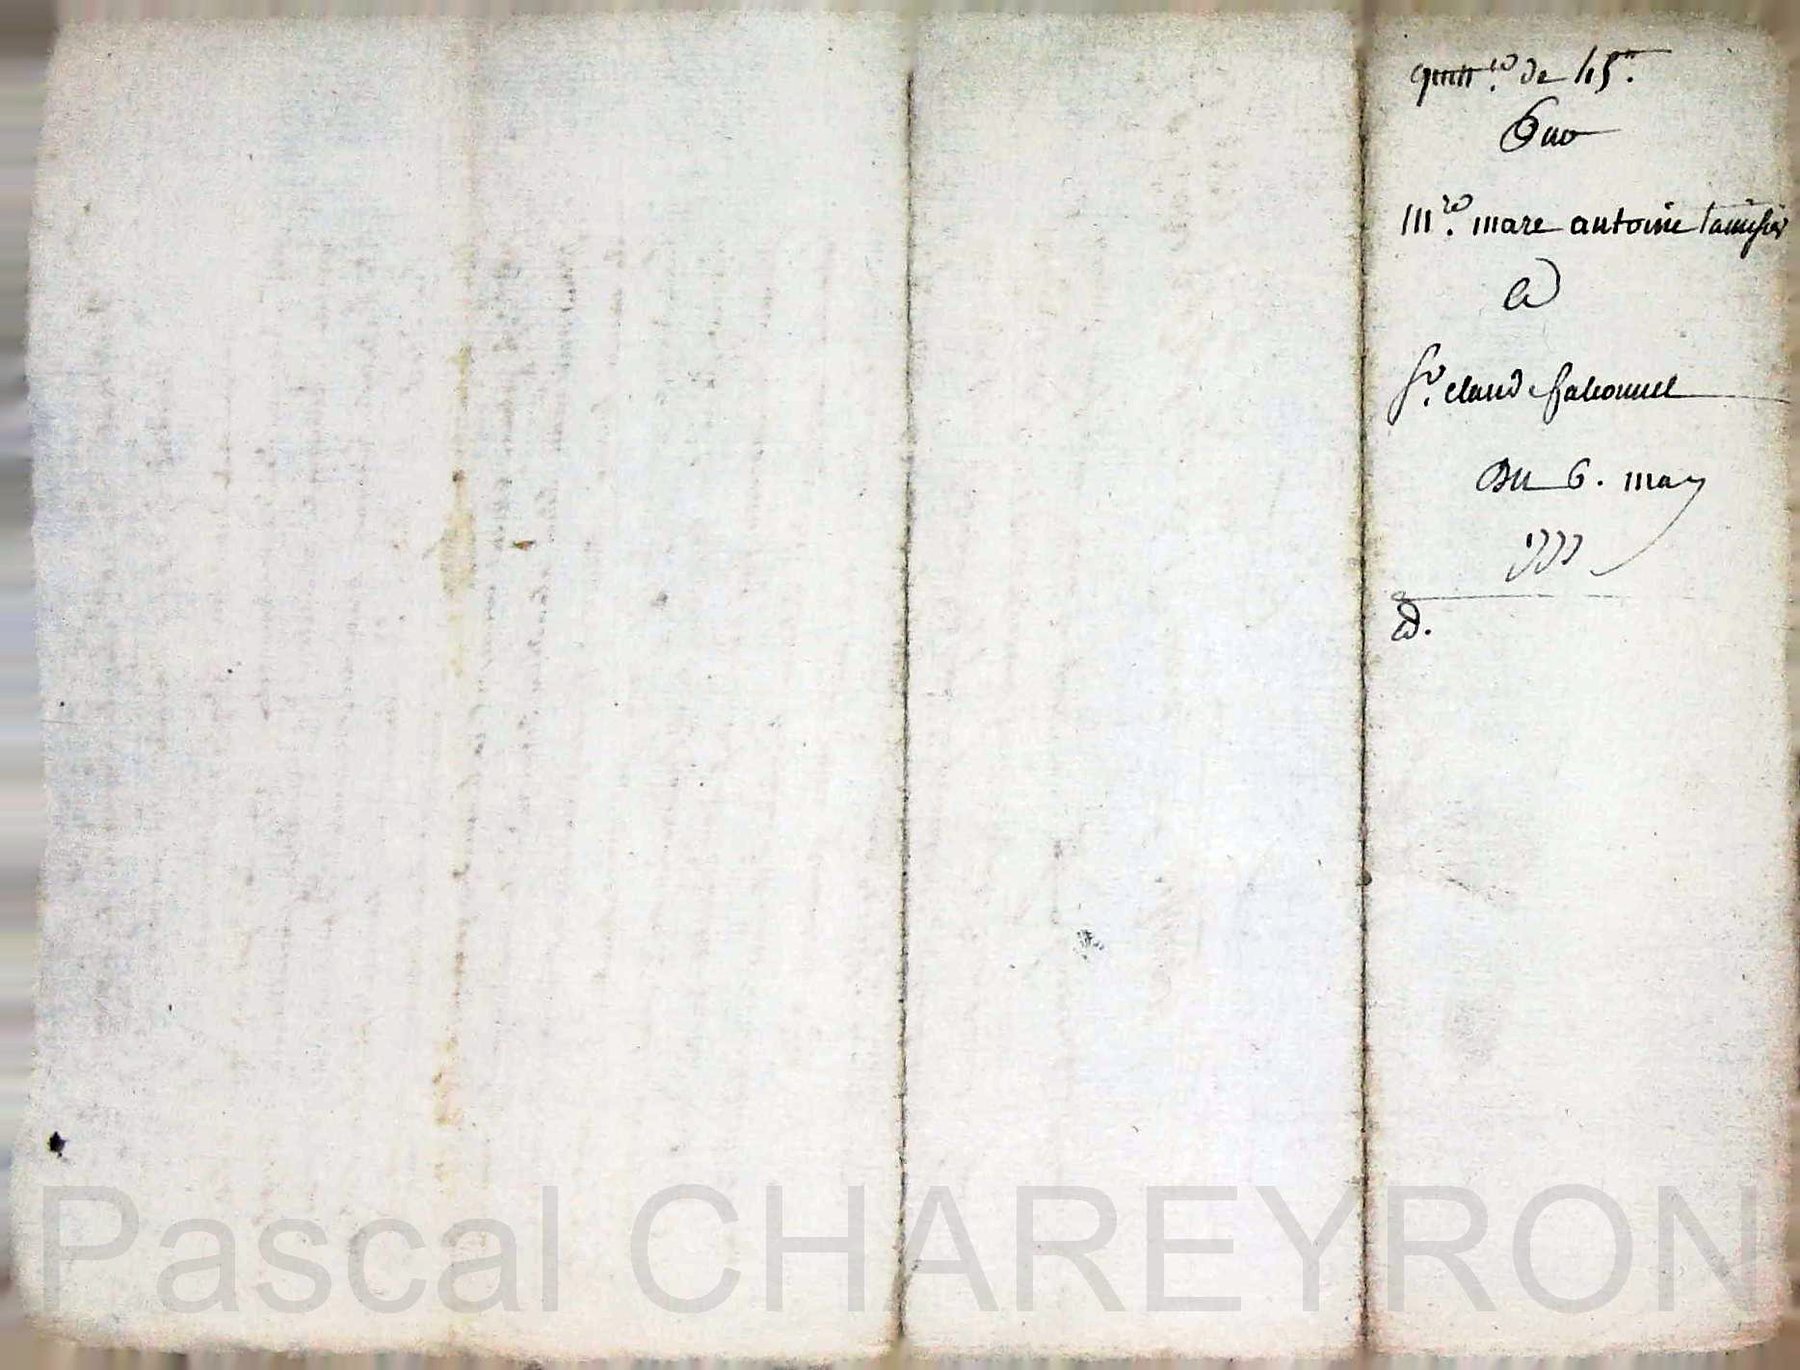 quitt.ce de 45ʰ.
Par
M.re marc antoine tavisier
A
S.r claud falconnet
Du 6. may
1777
Pascal CHAREYRON